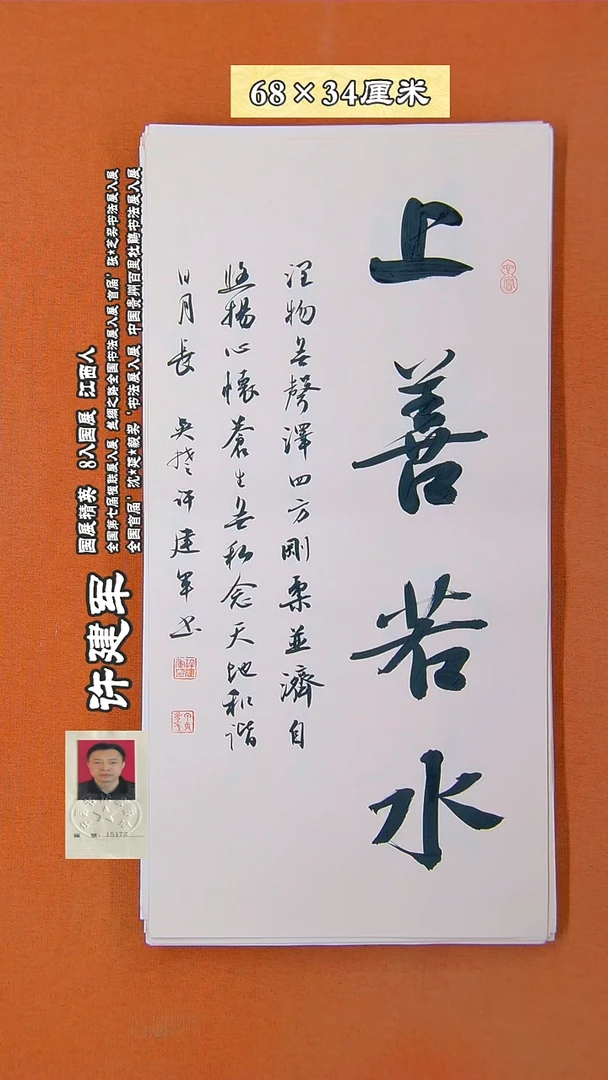 68×34厘米
上善若水
润物无声泽四方刚柔并济自
悠扬心怀苍生无私念天地和谐
日月长 吴楚许建军书
许建军
国展精英 8入国展 江西人
全国第七届楹联展入展 丝绸之路全国书法展入展 首届'张★芝奖书法展入展
全国首届'沈★延★毅奖'书法展入展 中国贵州百里杜鹃书法展入展
编 号：15172